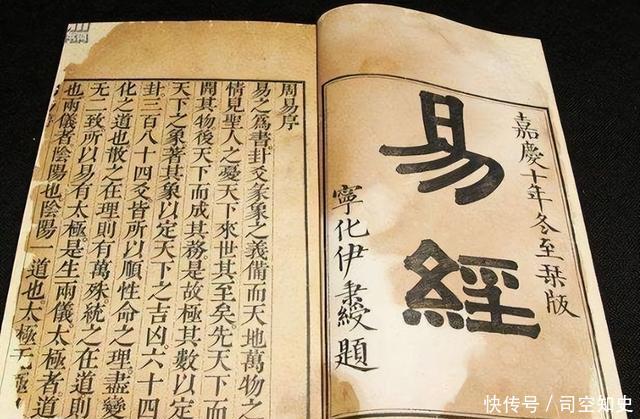 嘉慶十年冬至栞版
易經
寧化伊秉綬題
周易序
易之爲書卦爻彖象之義備而天地萬物之
情見聖人之憂天下來世其至矣先天下而
開其物後天下而成其務是故極其數以定
天下之象著其象以定天下之吉凶六十四
卦三百八十四爻皆所以順性命之理盡變
化之道也散之在理則有萬殊統之在道則
無二致所以易有太極是生兩儀太極者道
也兩儀者陰陽也陰陽一道也太極无極
快传号／司空知史